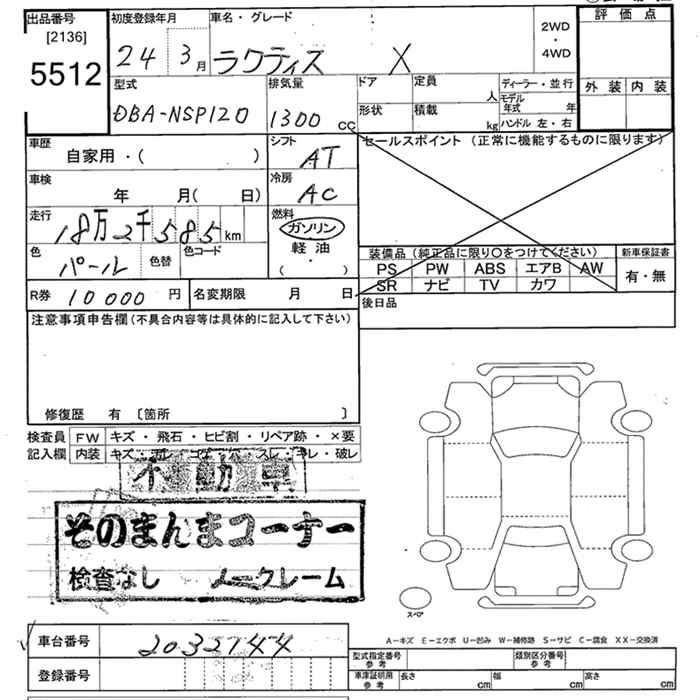 出品番号 初度登録年月 車名・グレード 2WD ・ 4WD 評価点
[2136]
5512 24 3月 ラクティス X
外装 内装
型式 排気量 ドア 定員 人 ディーラー・並行
モデル年式 年
DBA-NSP120 1300 cc 形状 積載 kg ハンドル 左・右
車歴 シフト セールスポイント (正常に機能するものに限ります)
自家用・( ) AT
車検 冷房
年 月( 日) AC
走行 燃料
18万2千585km ガソリン
色 色替 色コード 軽油 装備品 (純正品に限り○をつけてください) 新車保証書
パール ・ PS PW ABS エアB AW 有・無
( ) SR ナビ TV カワ
R券 10000円 名変期限 月 日 後日品
注意事項申告欄(不具合内容等は具体的に記入して下さい)
修復歴 有 〔箇所 〕
検査員 FW キズ・飛石・ヒビ割・リペア跡・×要
記入欄 内装 キズ・ スレ・キレ・破レ
不動車
そのまんまコーナー
検査なし ノークレーム
スペア
A-キズ E-エクボ U-凹み W-補修跡 S-サビ C-腐食 XX-交換済
車台番号 2032744
型式指定番号 参考 類別区分番号 参考
登録番号 車庫証明用 参考 長さ cm 幅 cm 高さ cm